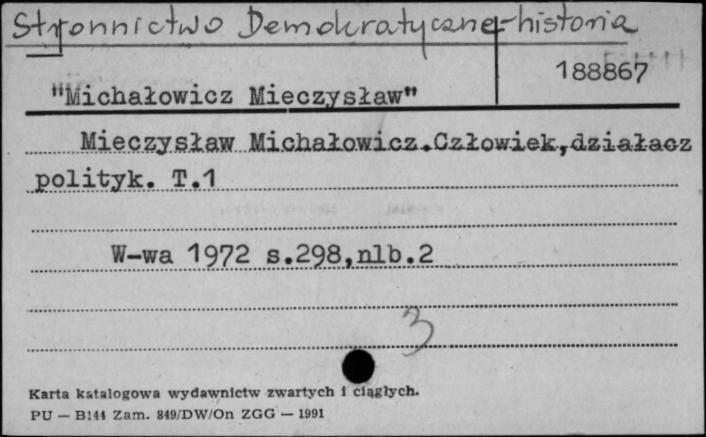 Stronnictwo Demokratyczne-historia
188867
"Michałowicz Mieczysław"
Mieczysław Michałowicz.Człowiek,działacz
polityk. T.1
W-wa 1972 s.298,nlb.2
3
Karta katalogowa wydawnictw zwartych i ciągłych.
PU — B144 Zam. 849/DW/On ZGG — 1991